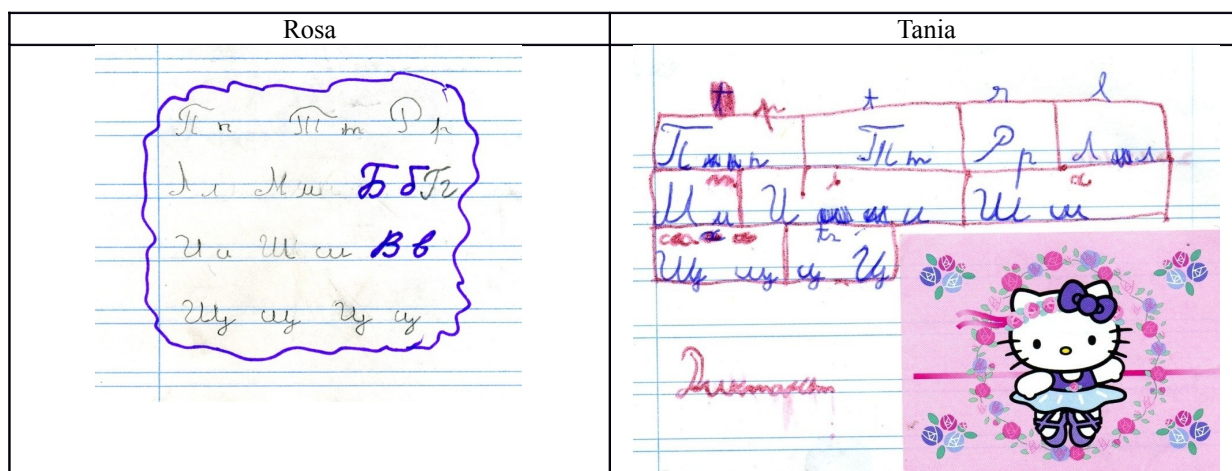 Rosa
Tania
П п Т т Р р
Л л М м Б б Г г
И и Ш ш В в
Щ щ Ц ц
p t r l
П п Т т Р р Л л
m i
М м И и Ш ш
Щ щ ц Ц